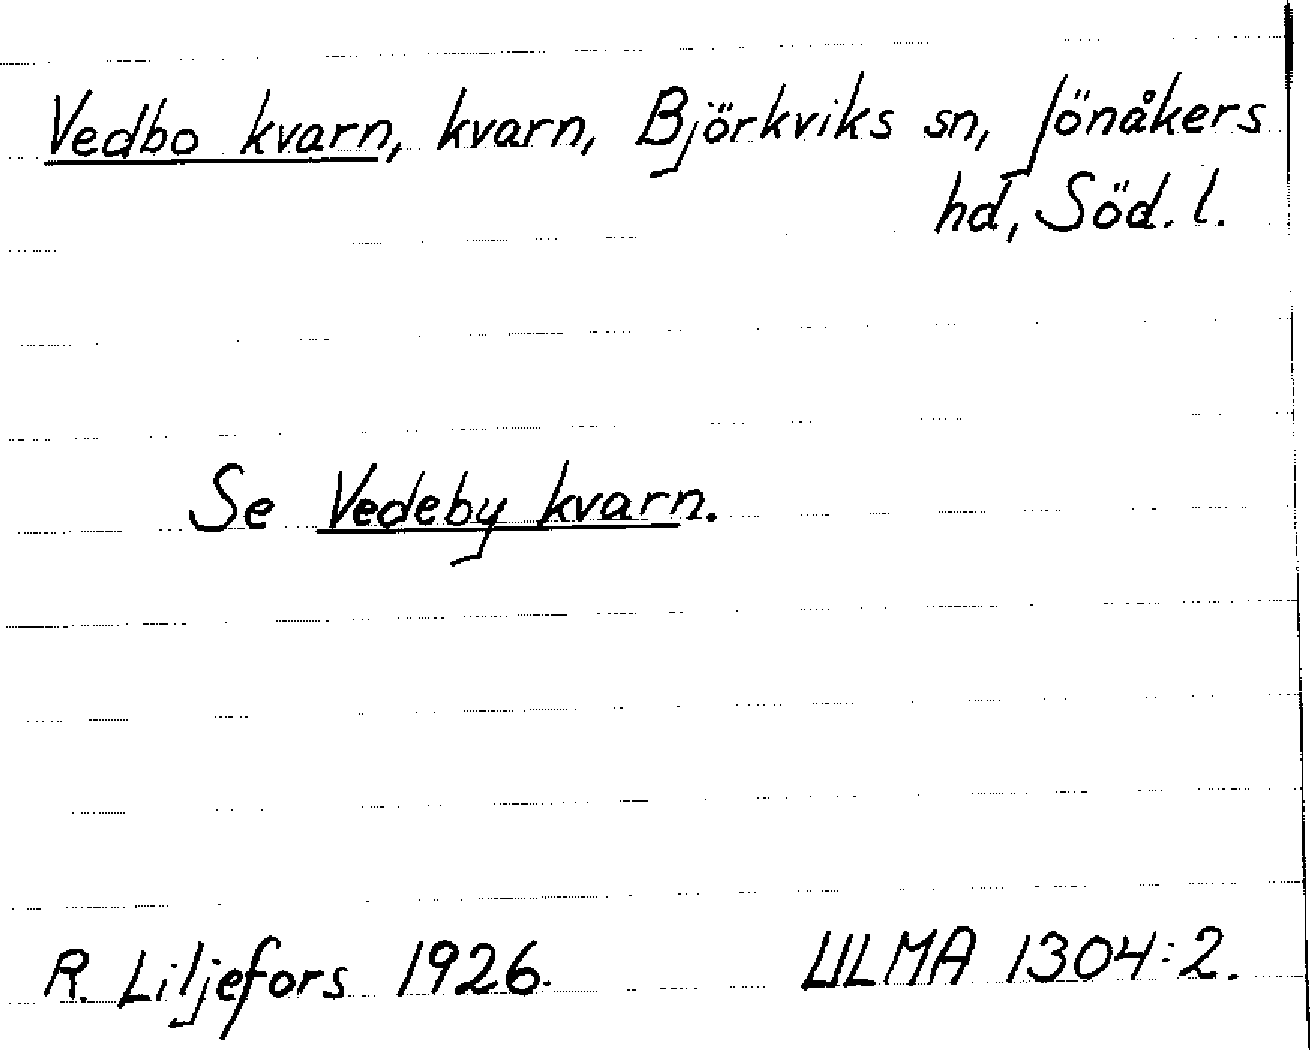 Vedbo kvarn, kvarn, Björkviks sn, Jönåkers
hd, Söd. l.
Se Vedeby kvarn.
R. Liljefors 1926. ULMA 1304:2.